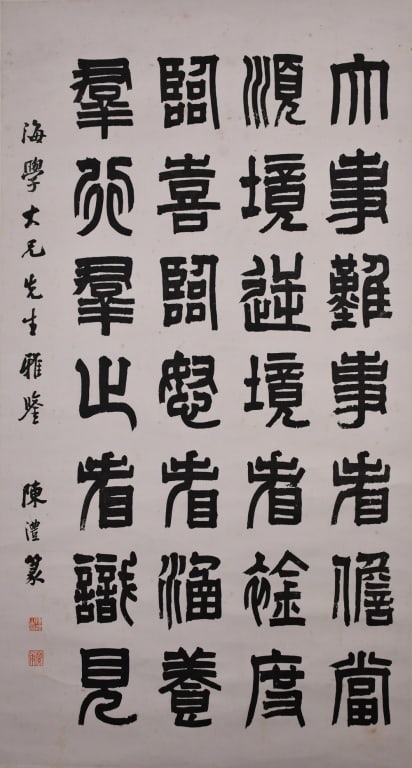 大事難事看儋當
順境逆境看襟度
臨喜臨怒看涵養
羣行羣止看識見
海學大兄先生雅鑒 陳澧篆